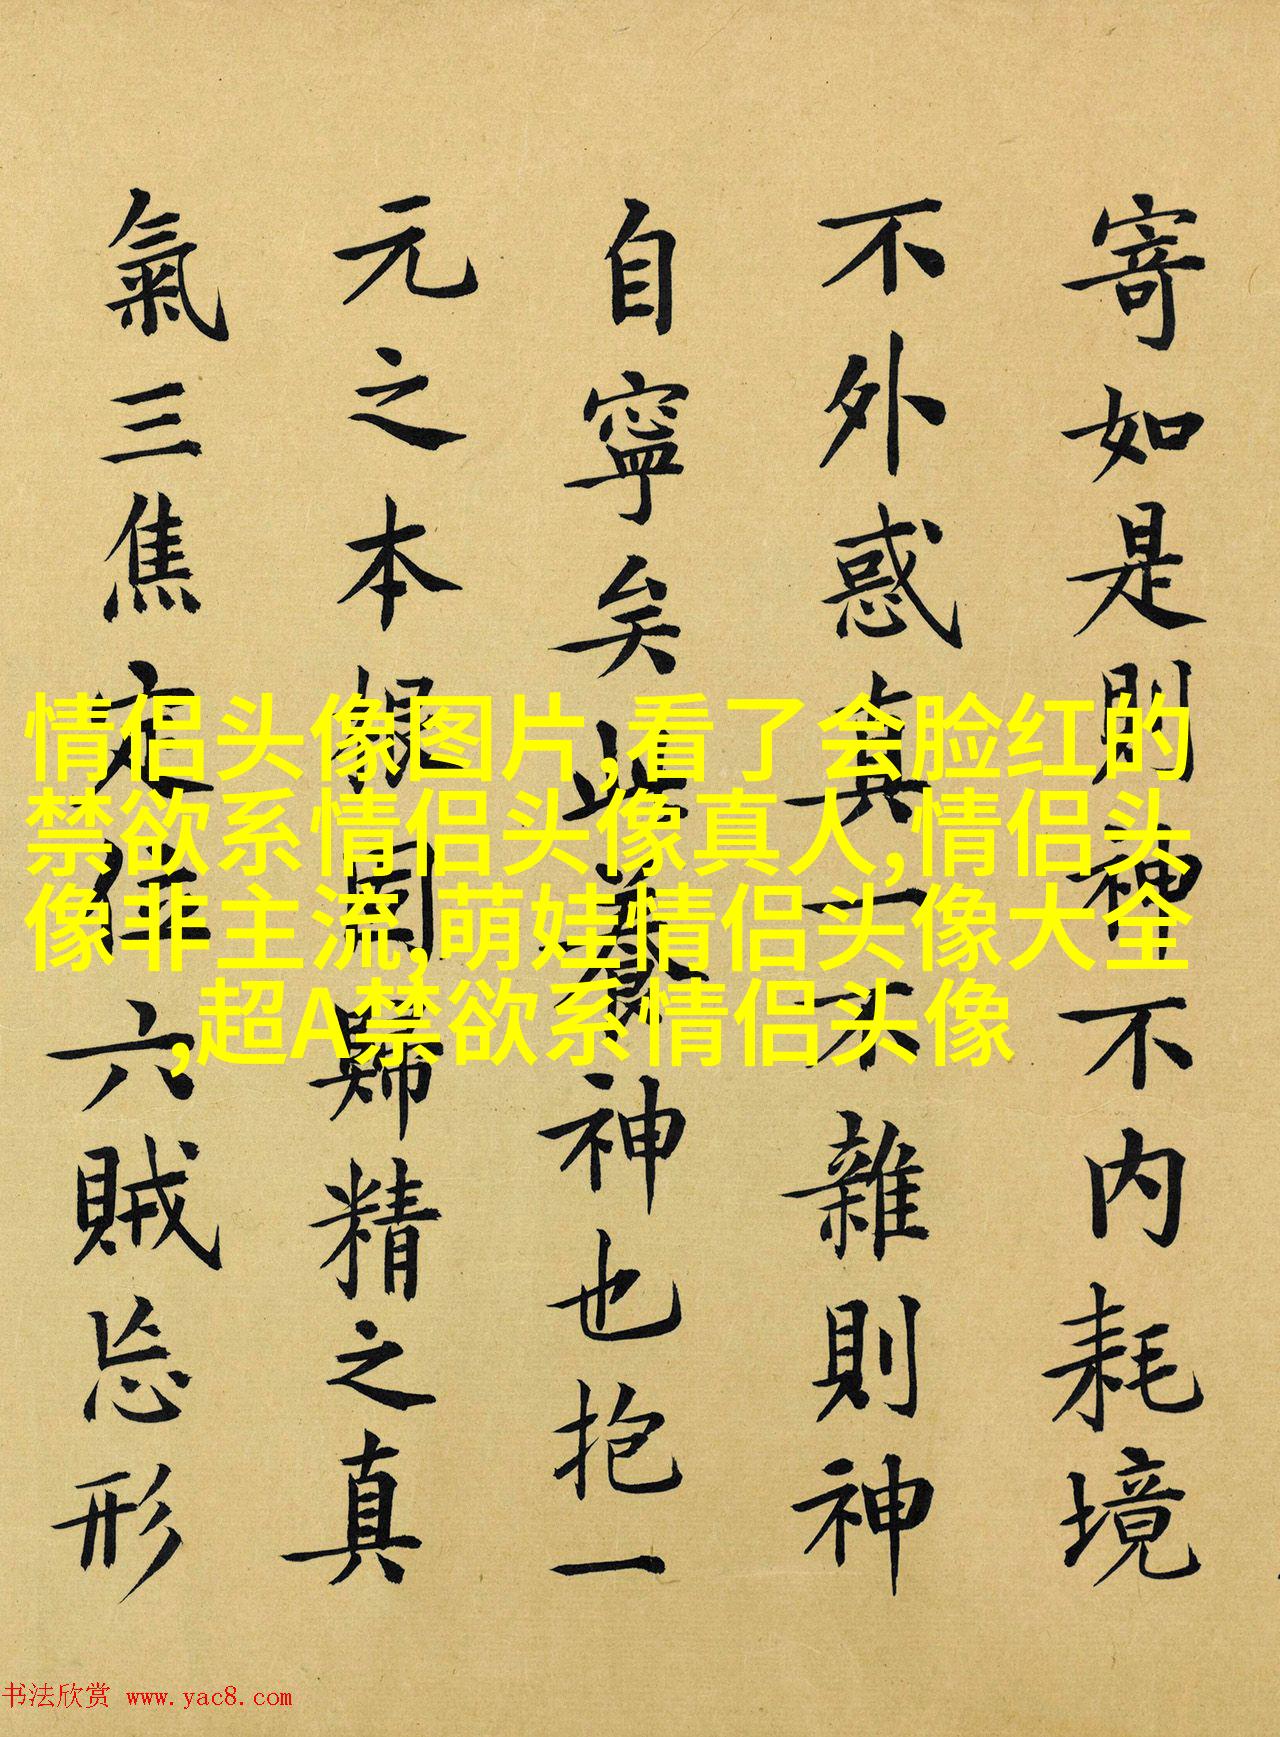 寄如是則神不内耗境
不外惑真一不雜則神
自寧矣此養神也抱一
元之本根固歸精之真
氣三焦定位六賊忘形
情侣头像图片,看了会脸红的
禁欲系情侣头像真人,情侣头
像非主流,萌娃情侣头像大全
,超A禁欲系情侣头像
书法欣赏 www.yac8.com